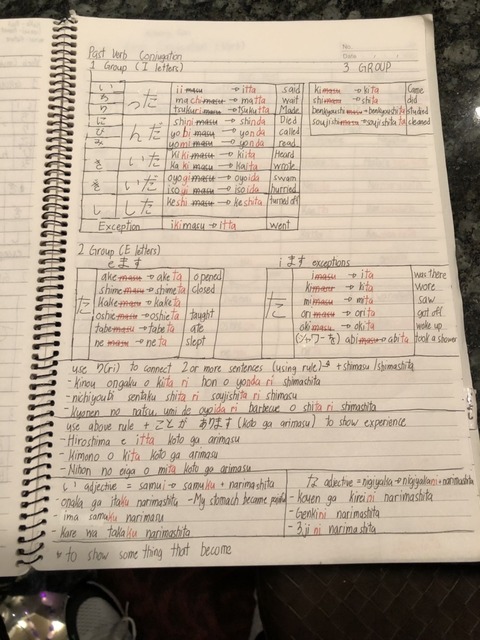 Past Verb Conjugation
No.
Date
1 Group (I letters)
3 GROUP
い ち り った
ii masu → itta said
machi masu → matta wait
tsukuri masu → tsukutta Made
に び み んだ
shini masu → shinda Died
yobi masu → yonda called
yomi masu → yonda read
き いた
kiki masu → kiita Heard
kaki masu → kaita wrote
ぎ いだ
oyogi masu → oyoida swam
isogi masu → isoida hurried
し した
keshi masu → keshita turned off
Exception ikimasu → itta went
ki masu → kita Came
shi masu → shita did
benkyoushi masu → benkyoushita studied
soujishi masu → soujishita cleaned
2 Group (E letters)
e ます
た
ake masu → aketa opened
shime masu → shimeta closed
kake masu → kaketa
oshie masu → oshieta taught
tabe masu → tabeta ate
ne masu → neta slept
i ます exceptions
た
i masu → ita was there
ki masu → kita wore
mi masu → mita saw
ori masu → orita got off
oki masu → okita woke up
(シャワーを) abi masu → abita took a shower
use り(ri) to connect 2 or more sentences (using rule) + shimasu/shimashita
- Kinou ongaku o kiita ri hon o yonda ri shimashita
- nichiyoubi sentaku shita ri soujishita ri shimasu
- Kyonen no natsu, umi de oyoida ri barbecue o shita ri shimashita
use above rule + ことが あります (koto ga arimasu) to show experience
- Hiroshima e itta koto ga arimasu
- Kimono o kita koto ga arimasu
- Nihon no eiga o mita koto ga arimasu
い adjective = samui → samuku + narimashita
- onaka ga itaku narimashita - My stomach became painful
- ima samuku narimasu
- Kare wa takaku narimashita
な adjective = nigiyaka → nigiyakani + narimashita
- Kouen ga kireini narimashita
- Genkini narimashita
- 3ji ni narimashita
* to show something that become